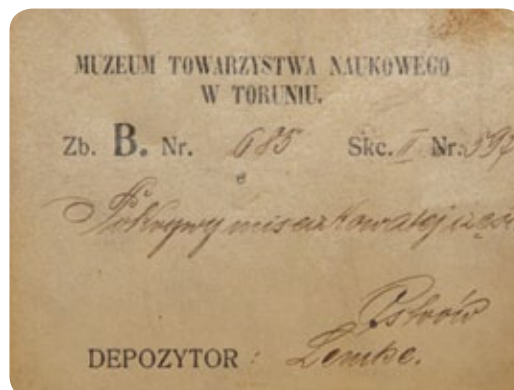 MUZEUM TOWARZYSTWA NAUKOWEGO
W TORUNIU.
Zb. B. Nr. 685 Skc. II Nr. 597
e
Pokrywy miseczkowatej część
Ostrów
DEPOZYTOR : Lemke.